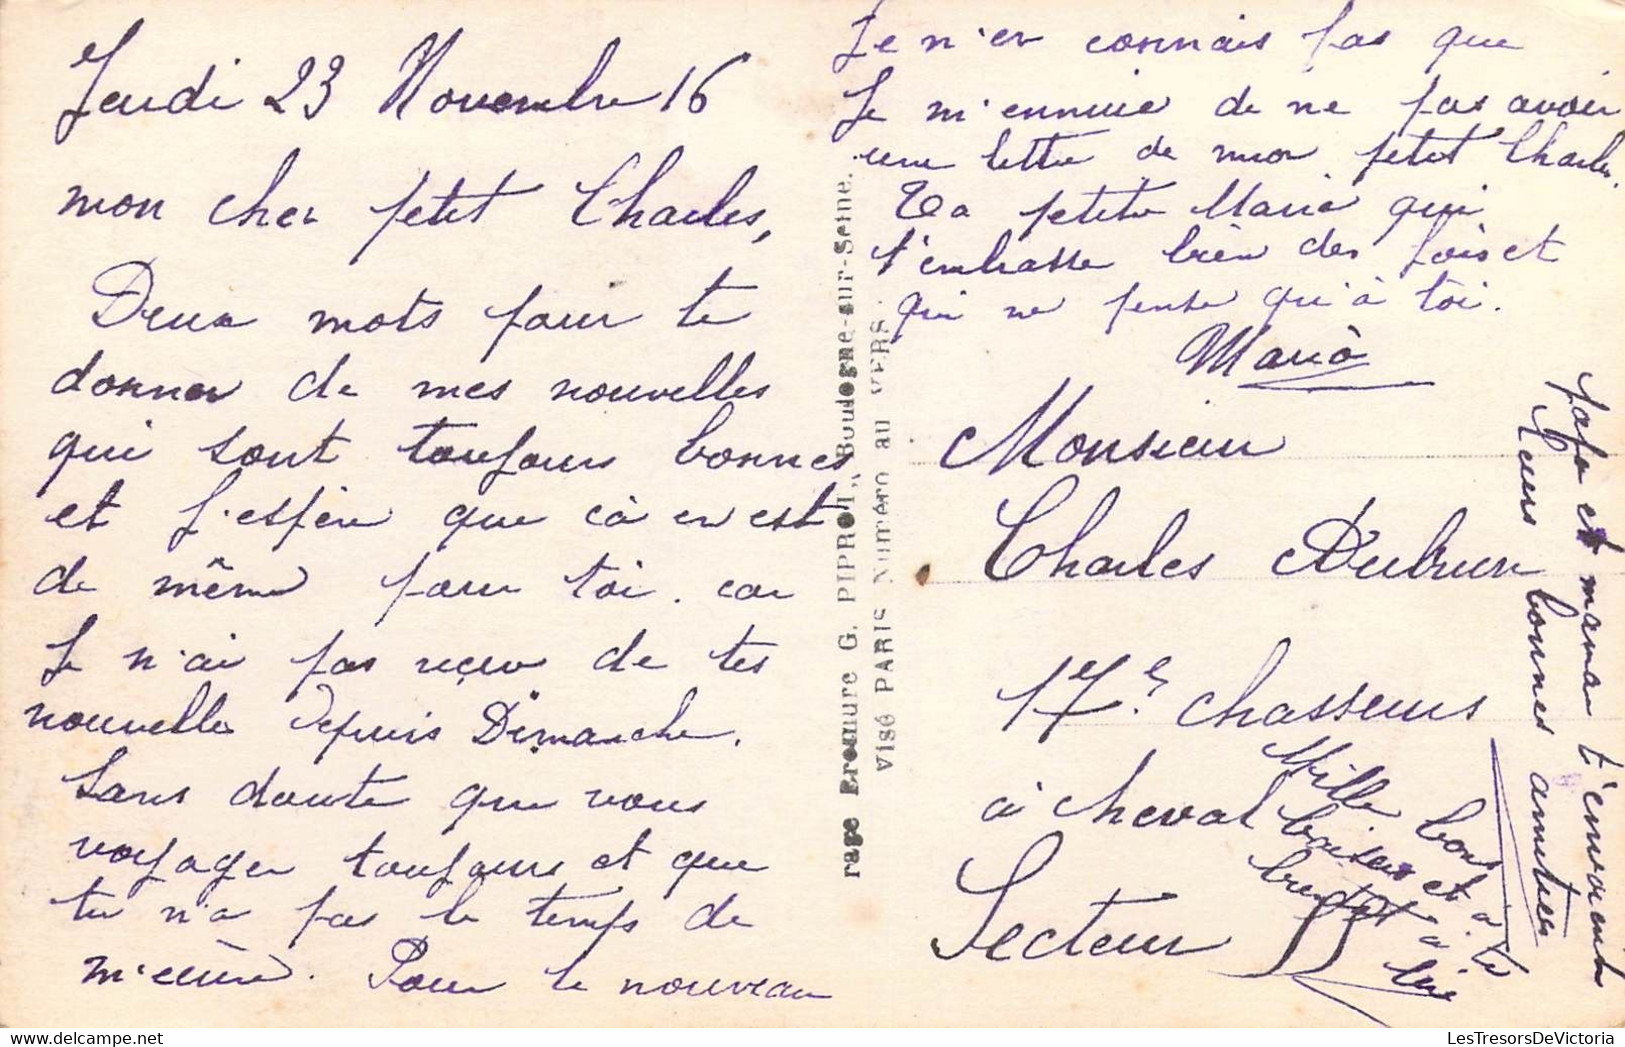 Jeudi 23 Novembre 16
mon cher petit Charles,
Deux mots pour te
donner de mes nouvelles
qui sont toujours bonnes
et j'espère que cà en est
de même pour toi. car
Je n'ai pas reçeu de tes
nouvelle depuis Dimanche.
Sans doute que vous
voyager toujours et que
tu n'a pas le temps de
m'ecrire. Pour le nouveau
Je n'en connais pas que
Je m'ennuie de ne pas avoir
une lettre de mon petit Charles.
Ta petite Maria qui
t'embrasse bien des fois et
qui ne pense qu'à toi.
Maria
Monsieur
Charles Dubrun
17e chasseurs
à cheval
Secteur
Mille bons
baisers et à te
à lire
papa et maman t'envoient
leurs bonnes amitiés
rage Bromure G. PIPROT, Boulogne-sur-Seine.
Visé PARIS Numéro au VERS.
LesTresorsDeVictoria.com